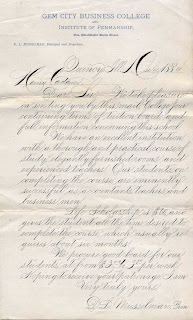 GEM CITY BUSINESS COLLEGE
AND
INSTITUTE OF PENMANSHIP,
D. L. MUSSELMAN, Principal and Proprietor.
Quincy, Ill. 188
Dear Sir: We take pleasure
in mailing you by this mail College
containing terms of tuition board and
full information concerning this school.
We have an excellent institution
with a thorough and practical course of
study, elegantly furnished rooms and
experienced teachers. Our students on
completing the course are eminently
successful as accountants, teachers and
business men.
The Scholarship is and
gives the student all the time desired to
complete the course which usually re-
quires about six months.
We procure good board for our
students at from per week.
Hoping to receive your patronage I am
Very truly yours,
D. L. Musselman, Prin.